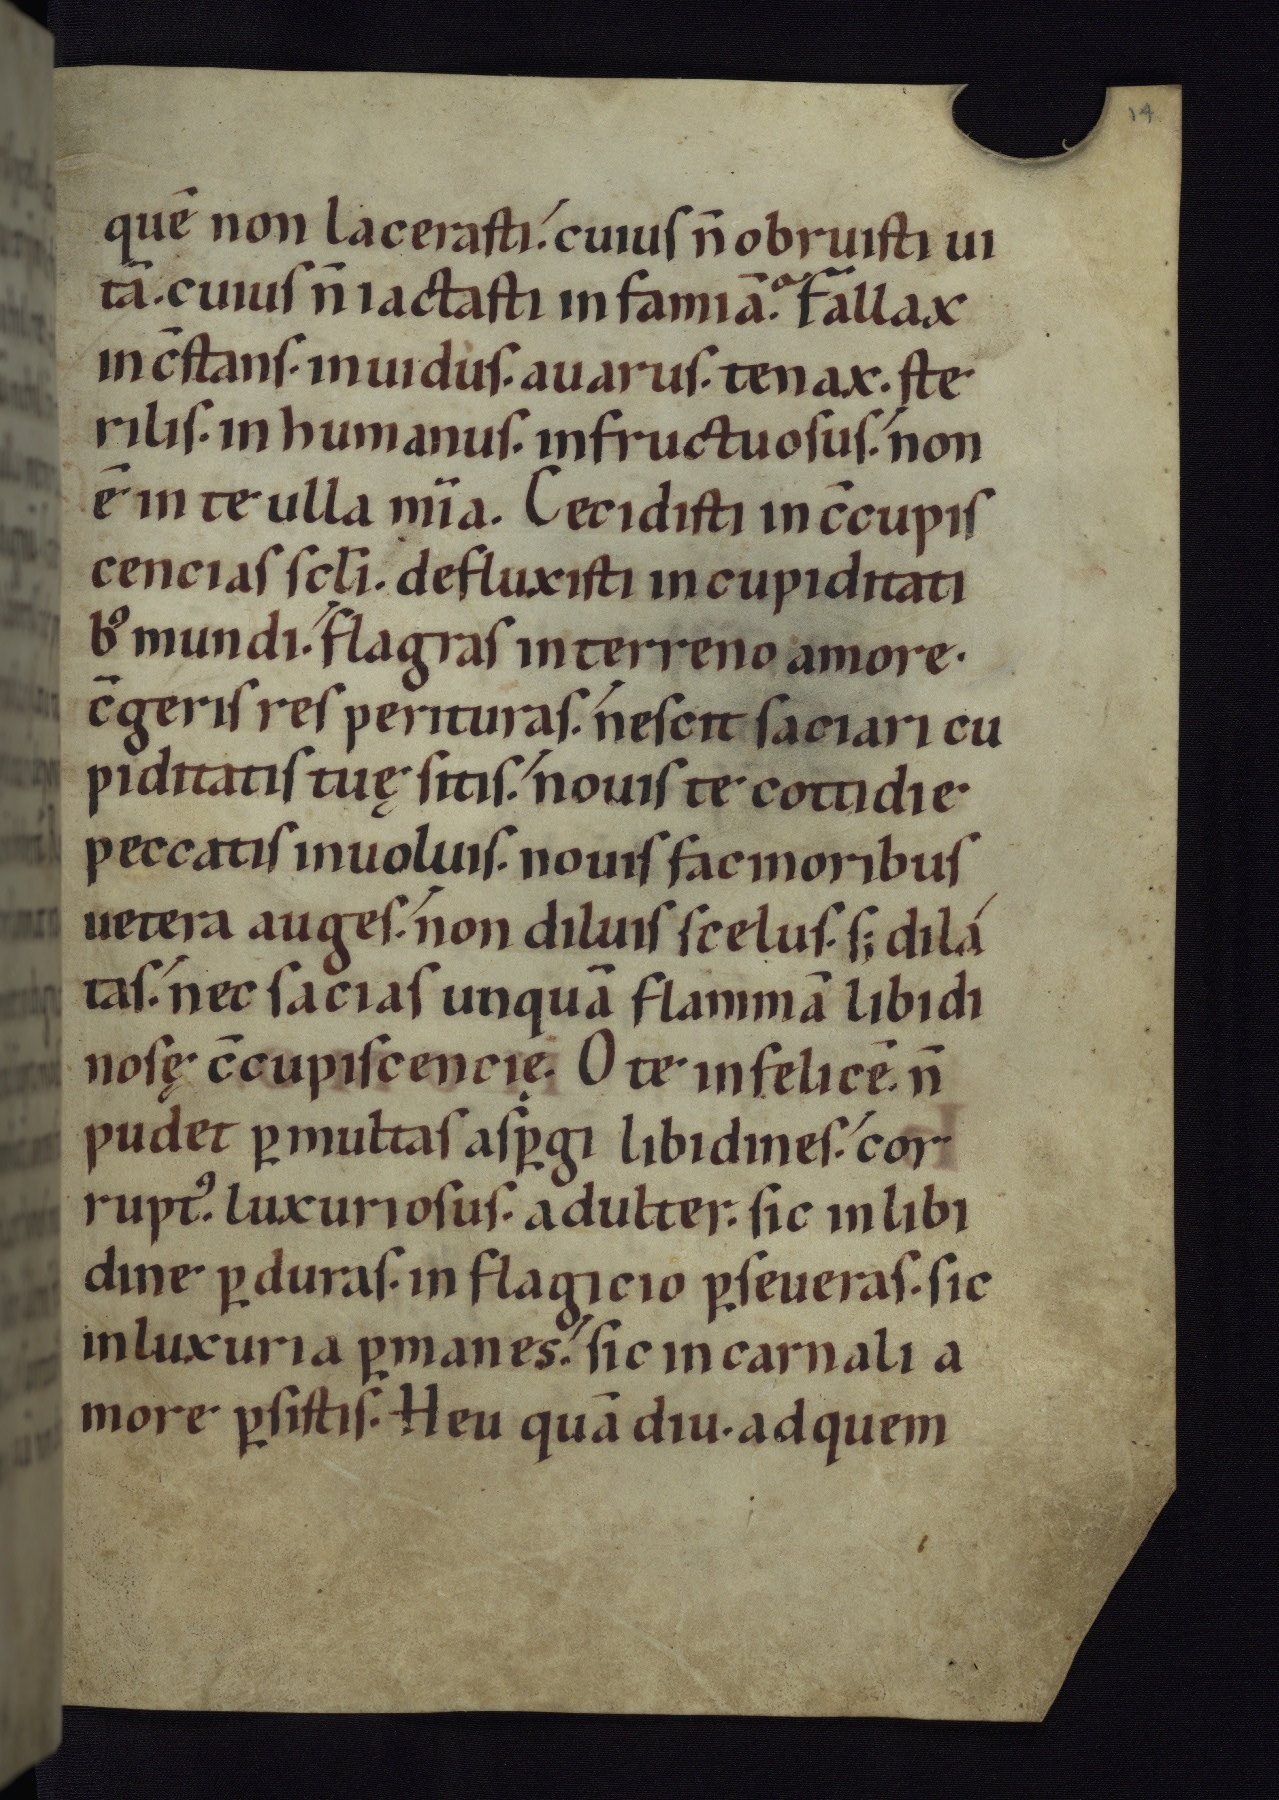 14
quē non lacerasti. cuius n̄ obruisti ui
tā. cuius n̄ iactasti infamiā. Fallax
inc̄stans. inuidus. auarus. tenax. ste
rilis. inhumanus. infructuosus. non
ē in te ulla mīa. Cecidisti in c̄cupis
cencias scl̄i. defluxisti in cupiditati
bꝰ mundi. flagras in terreno amore.
c̄geris res perituras. nescit saciari cu
piditatis tuę sitis. nouis te cottidie
peccatis inuoluis. nouis facinoribus
uetera auges. non diluis scelus. s; dilá
tas. nec sacias unquā flammā libidi
nosę c̄cupiscencię. O te infelicē. n̄
pudet ꝑ multas asꝑgi libidines. cor
ruptꝰ. luxuriosus. adulter. sic in libi
dine ꝑduras. in flagicio ꝑseueras. sic
in luxuria ꝑmanes. sic in carnali a
more ꝑsistis. Heu quā diu. ad quem